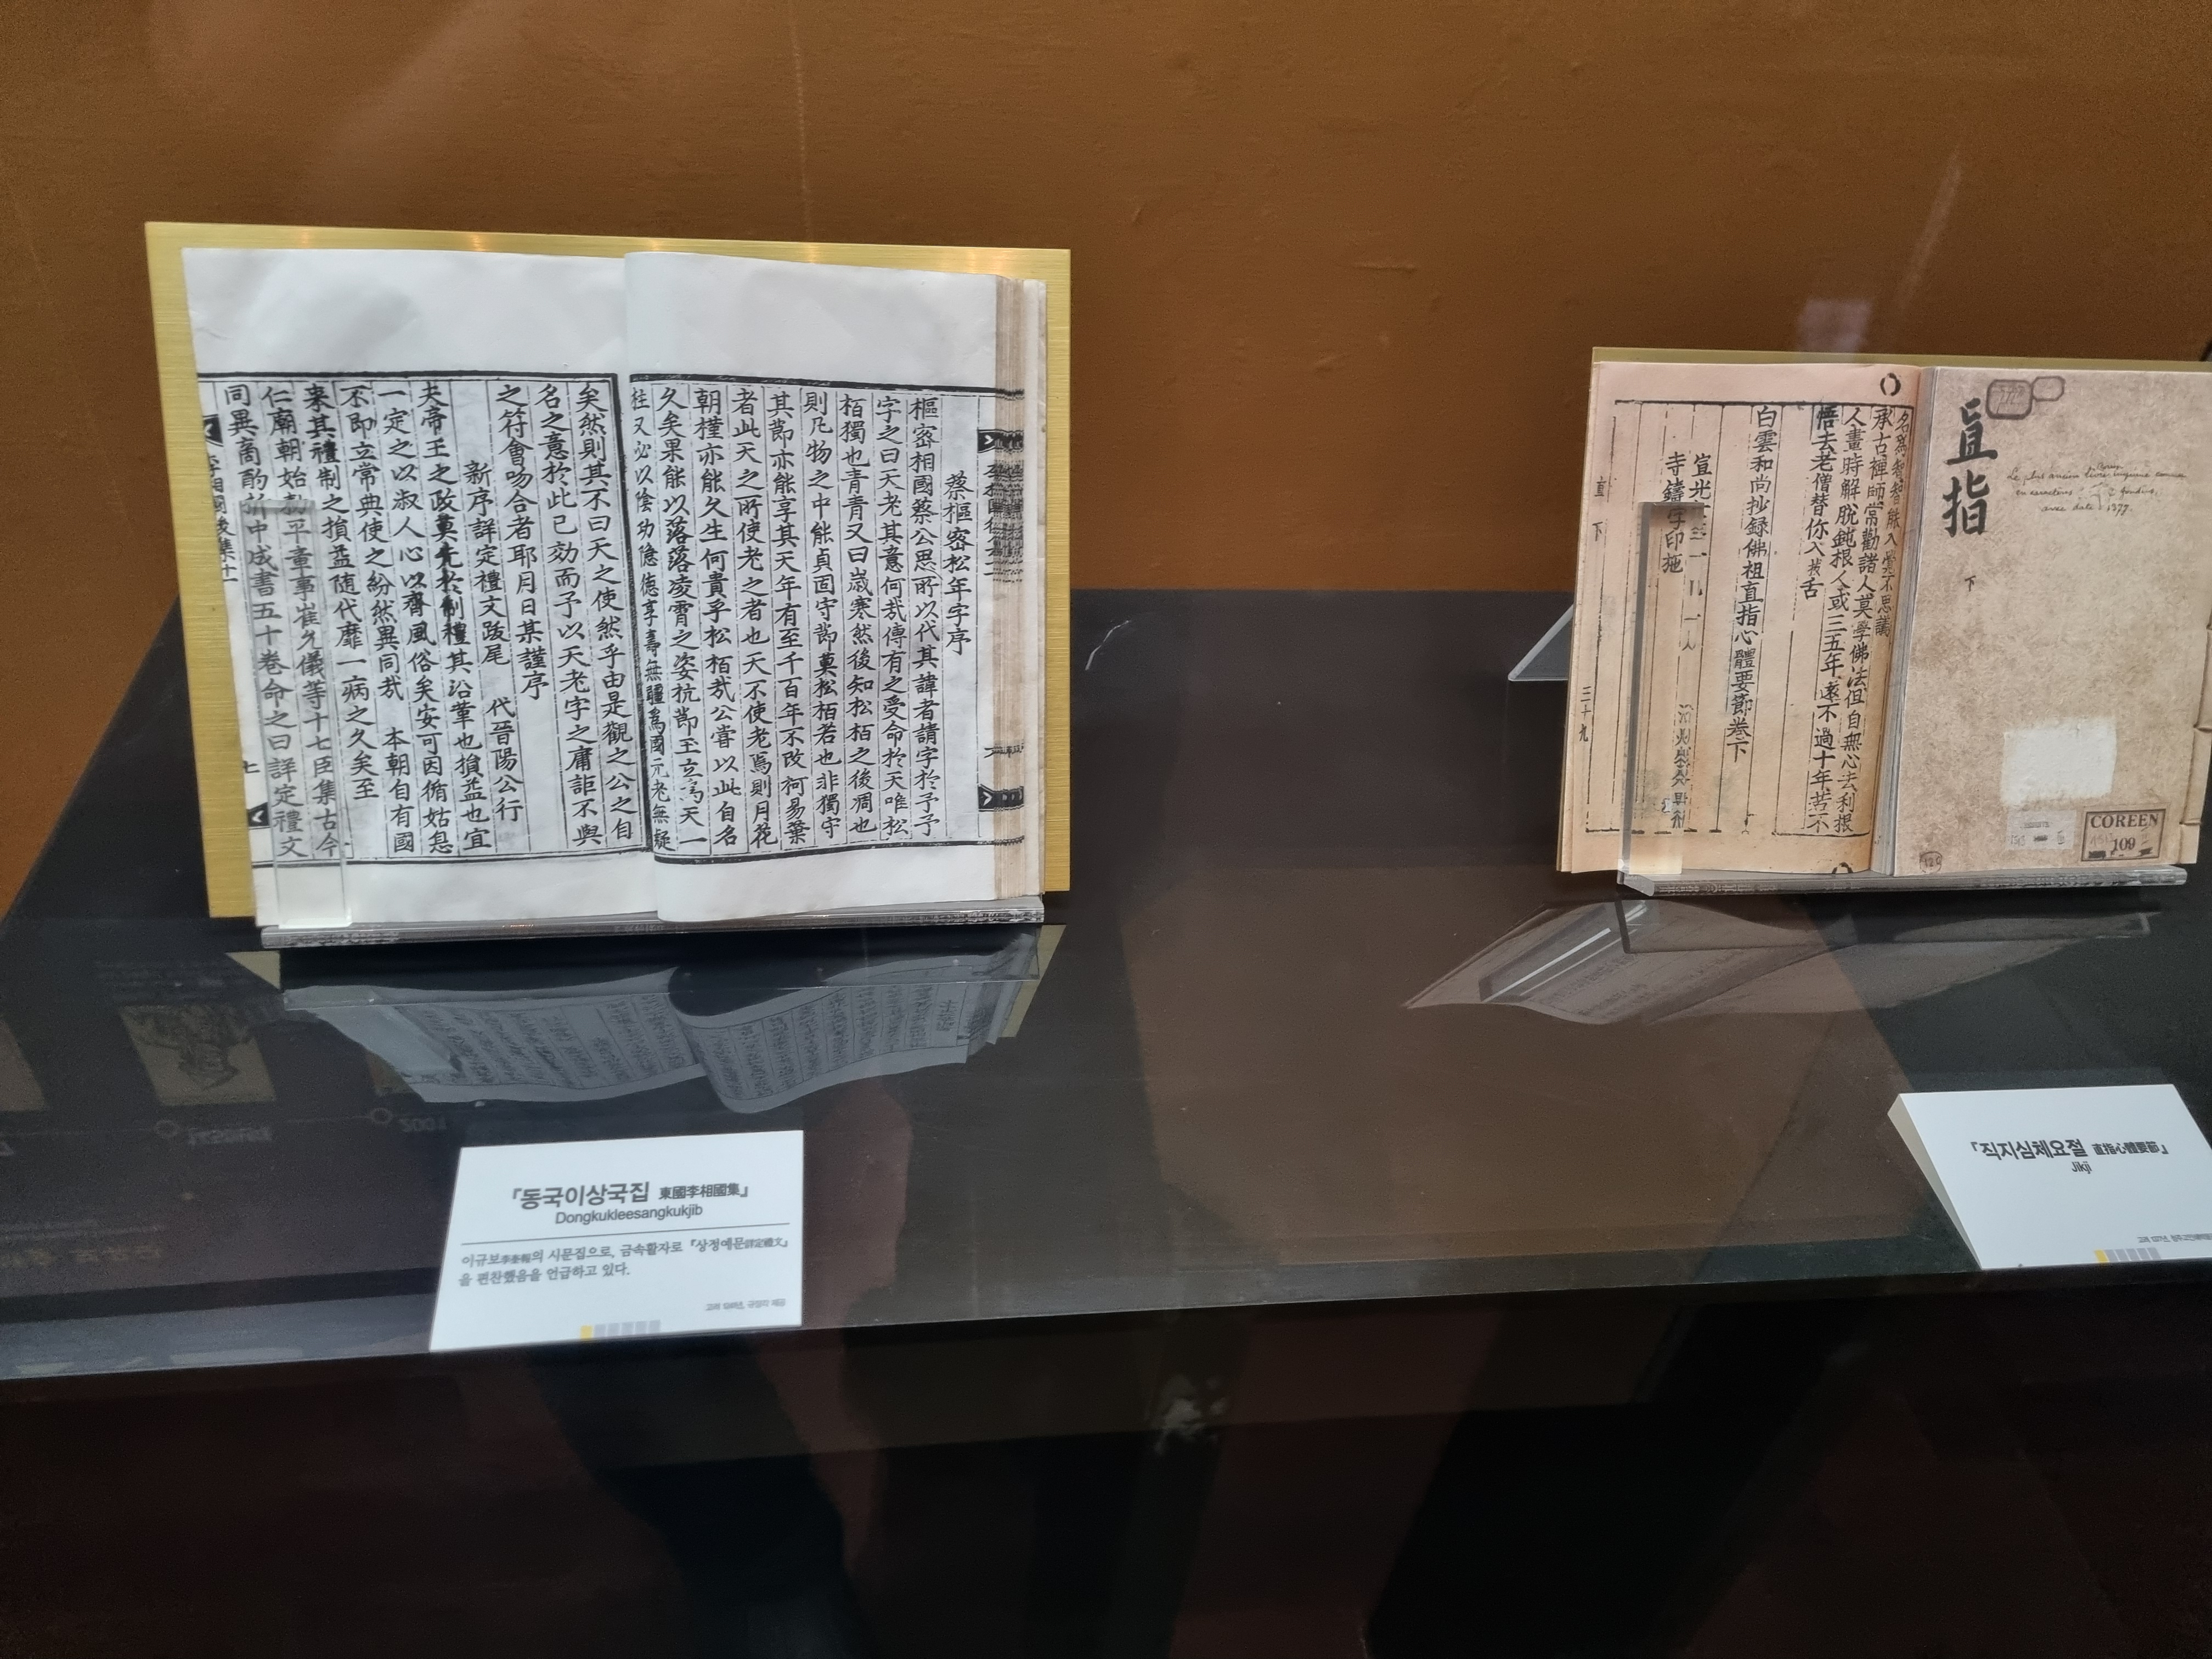 蔡樞密松年字序
樞密相國蔡公思所以代其諱者請字於予予
字之曰天老其意何哉傳有之受命於天唯松
栢獨也青青又曰歲寒然後知松栢之後凋也
則凡物之中能貞固守節莫松栢若也非獨守
其節亦能享其天年有至千百年不改柯易葉
者此天之所使老之者也天不使老焉則月花
朝槿亦能久生何貴乎松栢哉公嘗以此自名
久矣果能以落落凌霄之姿抗節玉立為天一
柱又必以陰功隐德享壽無疆爲國元老無疑
矣然則其不曰天之使然乎由是觀之公之自
名之意於此已効而予以天老字之庸詎不與
之符會吻合者耶月日某謹序
新序詳定禮文跋尾 代晉陽公行
夫帝王之政莫先於制禮其沿革也損益也宜
一定之以淑人心以齊風俗矣安可因循姑息
不即立常典使之紛然異同哉 本朝自有國
来其禮制之損益随代靡一病之久矣至
仁廟朝始勑平章事崔允儀等十七臣集古今
同異商酌折中成書五十卷命之曰詳定禮文
李相國後集十一
七
『동국이상국집 東國李相國集』
Dongkukleesangkukjib
이규보李奎報의 시문집으로, 금속활자로 『상정예문詳定禮文』
을 편찬했음을 언급하고 있다.
直指
下
Le plus ancien livre coréen imprimé connu
en caractères fondus,
avec date 1377.
COREEN
109
承古禪師常勸諸人莫學佛法但自無心去利根
人畫時解脫鈍根人或三五年遠不過十年若不
悟去老僧替你入拔舌
白雲和尚抄録佛祖直指心體要節卷下
寺鑄字印施
直 下 三十九
『직지심체요절 直指心體要節』
Jikji